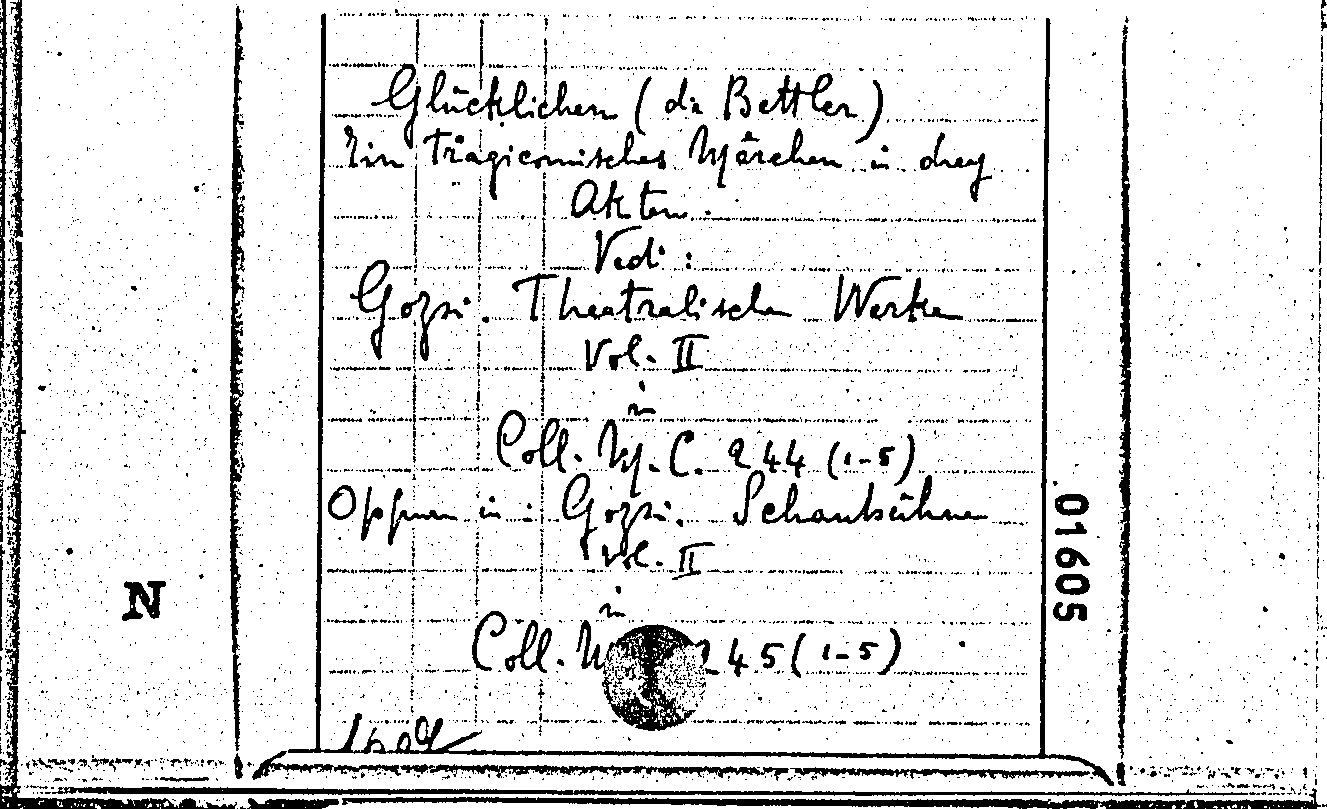 Glücklichen (die Bettler)
Ein tragicomisches Märchen in drey
Akten.
Vedi:
Gozzi. Theatralische Werke
Vol. II
in
Coll. M. C. 244 (1-5)
Oppure in: Gozzi. Schaubühne
Vol. II
in
Coll. 245 (1-5)
N
01605